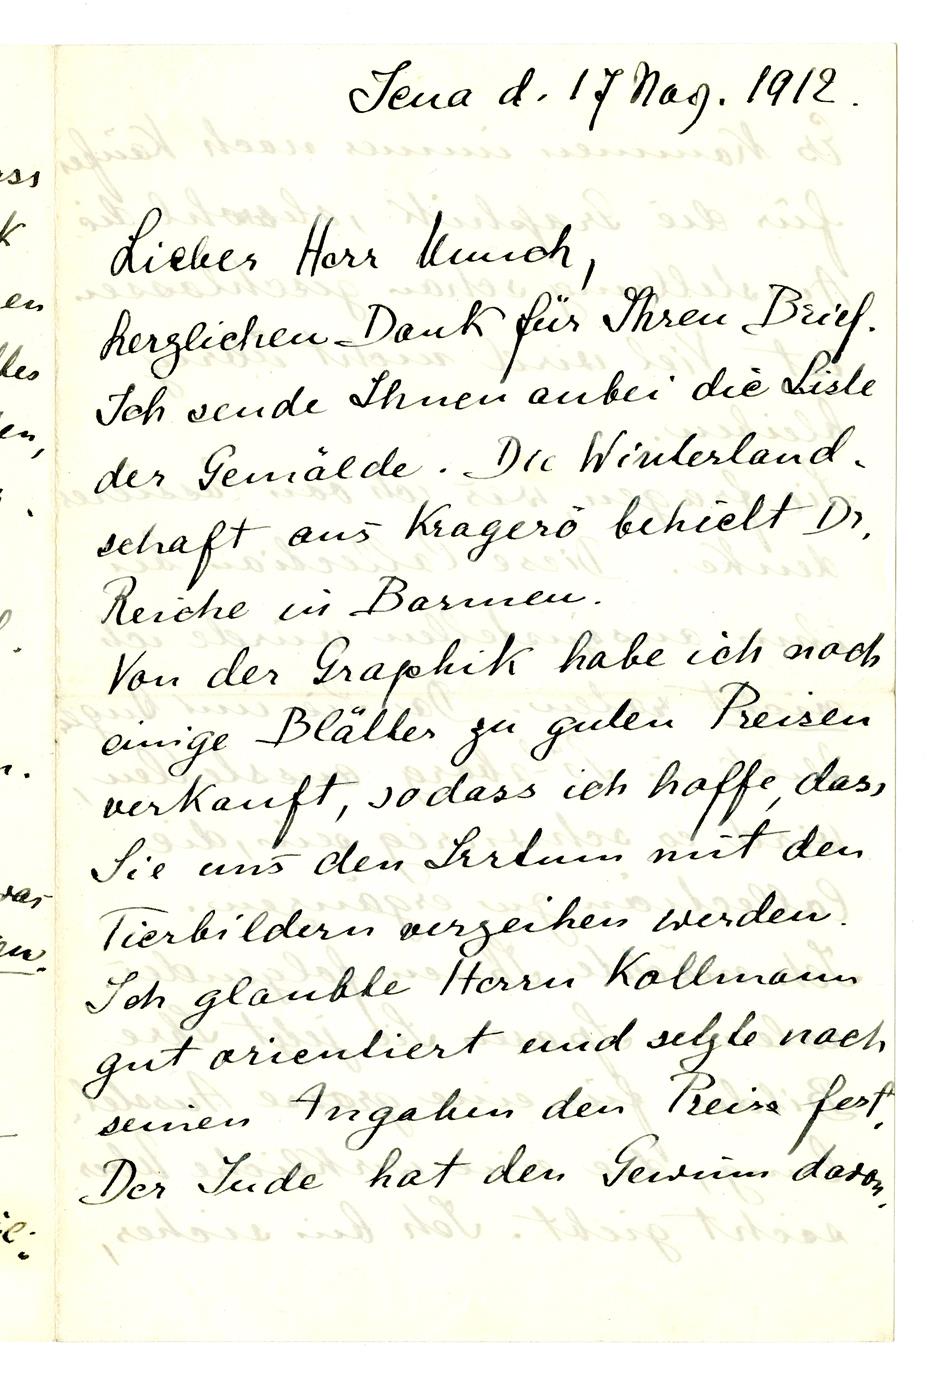 Jena d. 17 Nov. 1912.
Lieber Herr Munch,
herzlichen Dank für Ihren Brief.
Ich sende Ihnen anbei die Liste
der Gemälde. Die Winterland-
schaft aus Kragerö behielt Dr.
Reiche in Barmen.
Von der Graphik habe ich noch
einige Blätter zu guten Preisen
verkauft, sodass ich hoffe, dass
Sie uns den Irrtum mit den
Tierbildern verzeihen werden.
Ich glaubte Herrn Kollmann
gut orientiert und setzte nach
seinen Angaben den Preis fest.
Der Jude hat den Gewinn davon,